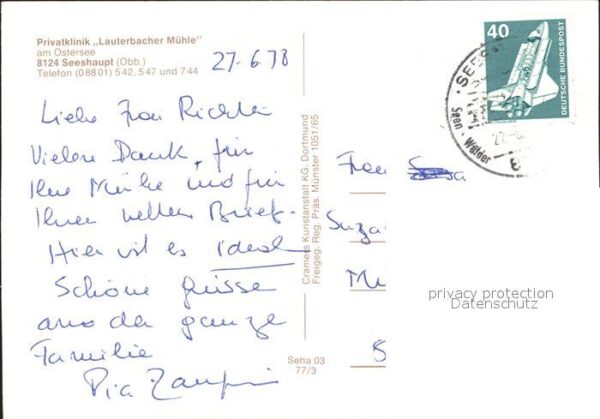 Privatklinik „Lauterbacher Mühle"
am Ostersee
8124 Seeshaupt (Obb.)
Telefon (08801) 542, 547 und 744
27-6.78
Liebe Frau Richter
Vielen Dank für
Ihre Mühe und für
Ihren netten Brief.
Hier ist es ideal
Schöne Grüsse
aus der ganze
Familie
Pia
Seha 03
77/3
Cramers Kunstanstalt KG, Dortmund
Freigeg. Reg. Präs. Münster 1051/65
40
DEUTSCHE BUNDESPOST
Seen · Wälder
Frau
privacy protection
Datenschutz